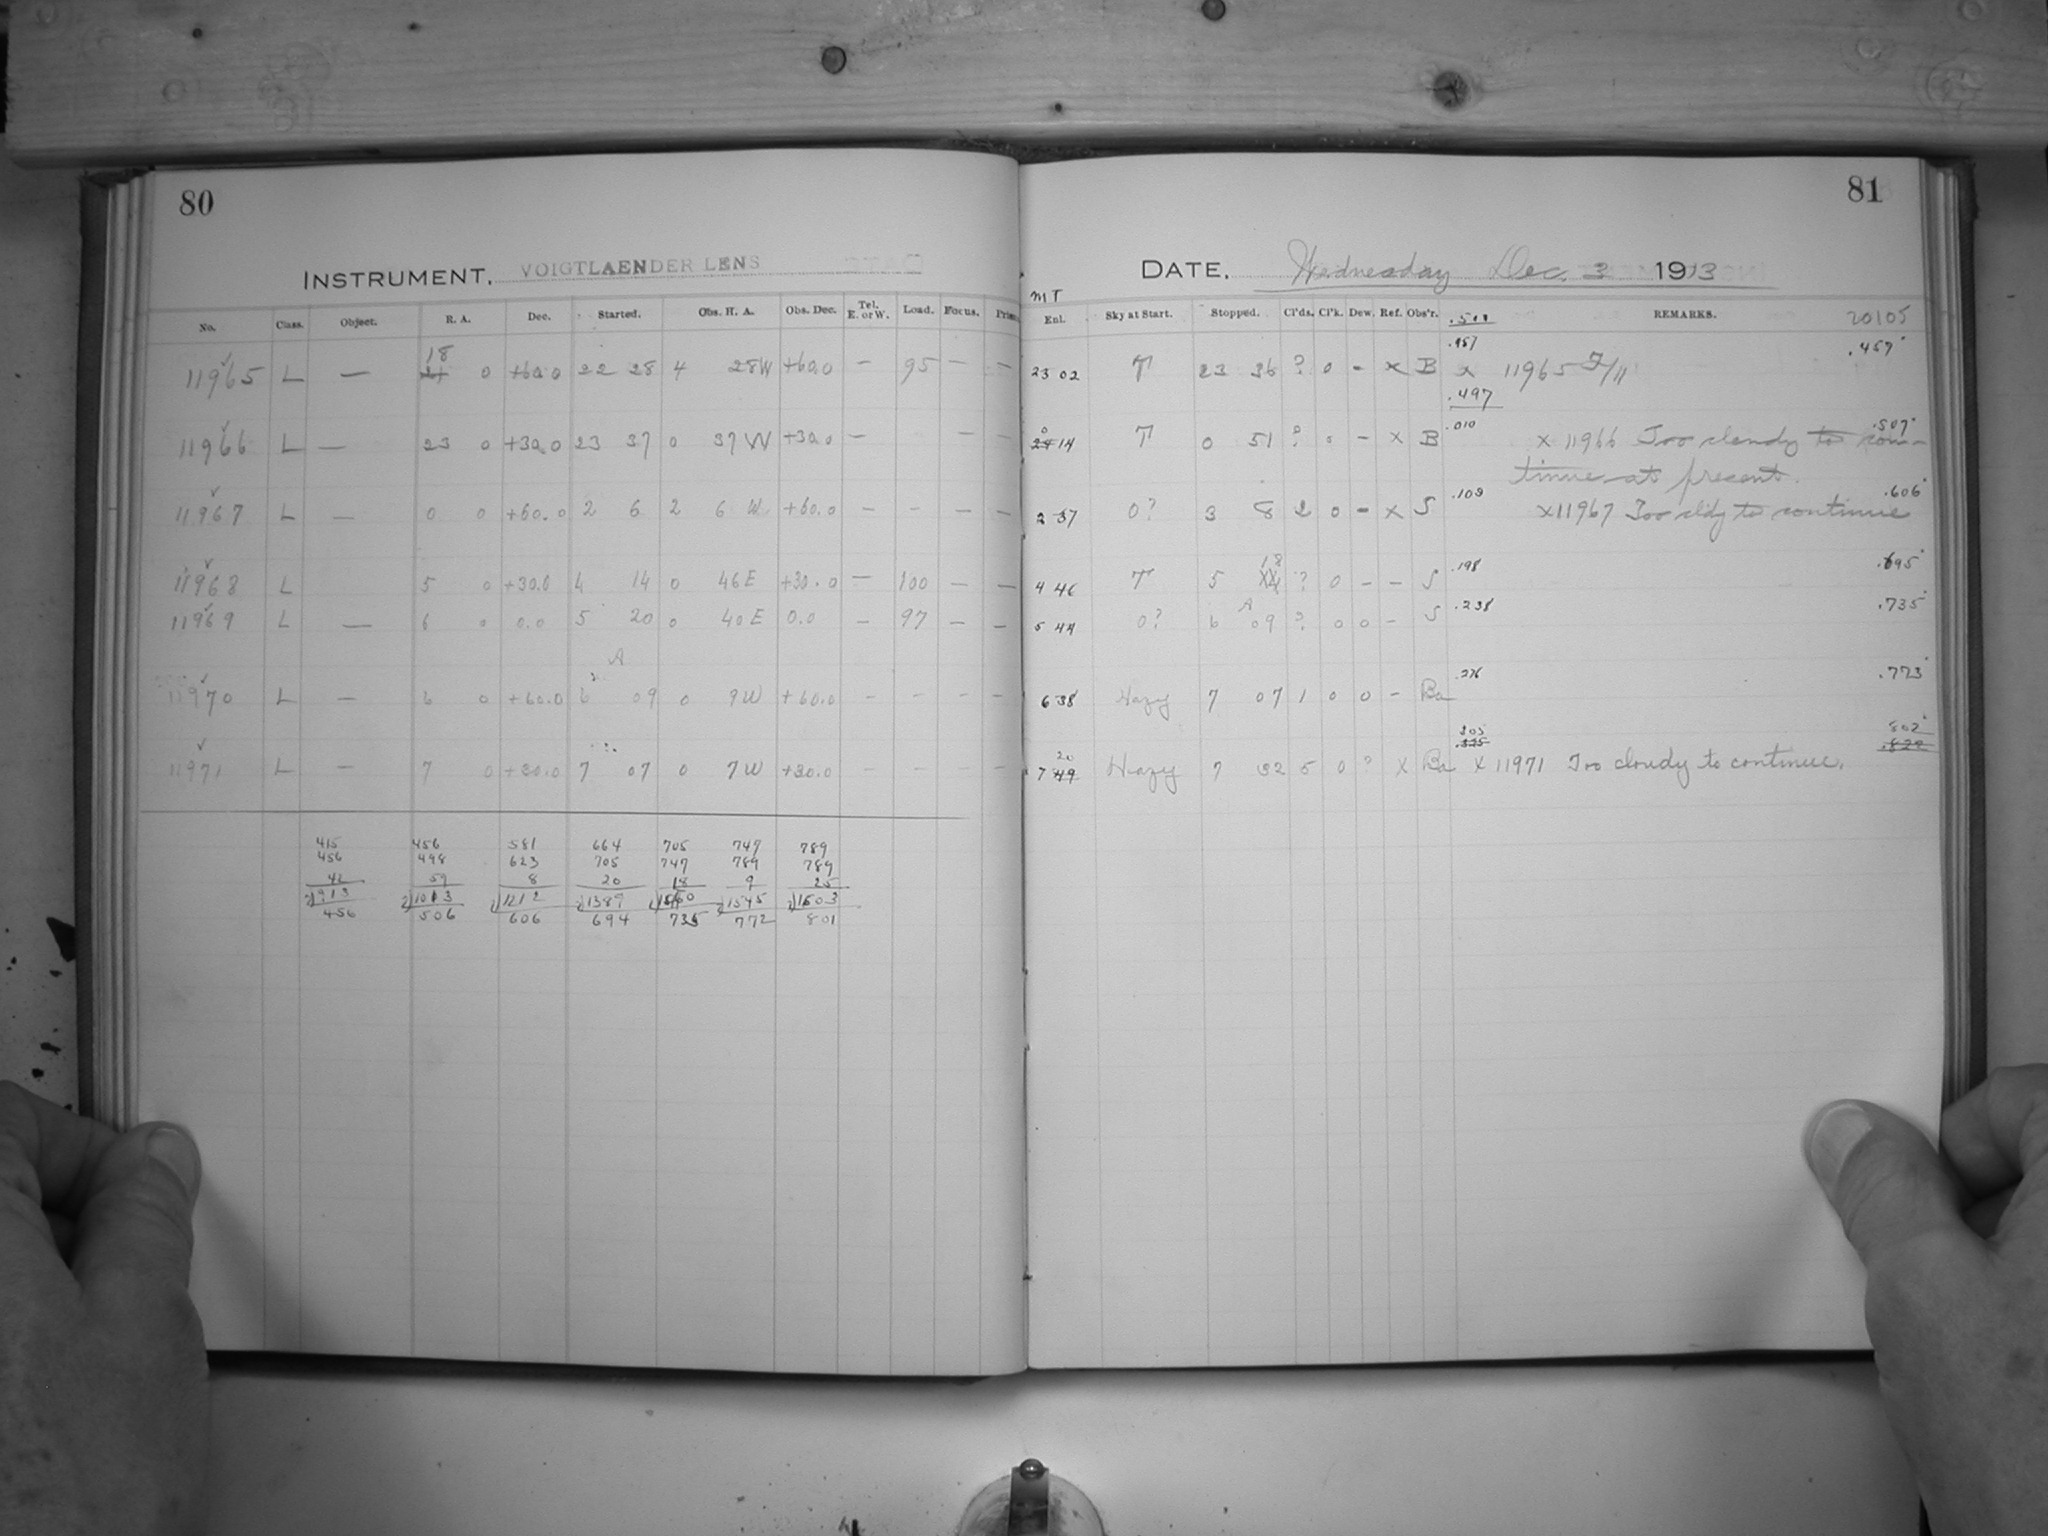 80
INSTRUMENT. VOIGTLAENDER LENS
No. Class. Object. R. A. Dec. Started. Obs. H. A. Obs. Dec. Tel. E. or W. Load. Focus.
18
11965 L — 21 0 +60.0 22 28 4 28W +60.0 — 95 — —
11966 L — 23 0 +30.0 23 37 0 37W +30.0 — — —
11967 L — 0 0 +60.0 2 6 2 6 W +60.0 — — — —
11968 L 5 0 +30.0 4 14 0 46E +30.0 — 100 — —
11969 L — 6 0 0.0 5 20 0 40E 0.0 — 97 — —
A
11970 L — 6 0 +60.0 6 09 0 9W +60.0 — — — —
11971 L — 7 0 +30.0 7 07 0 7W +30.0 — — — —
415 456 581 664 705 747 789
456 498 623 705 747 789 789
42 59 8 20 18 9 25
2)913 2)1013 2)1212 2)1389 2)1545 2)1603
456 506 606 694 735 772 801
81
DATE. Wednesday Dec. 3 1913
MT
Enl. Sky at Start. Stopped. Cl'ds. Cl'k. Dew. Ref. Obs'r. REMARKS. 20105
.457 .457
23 02 T 23 36 ? 0 - x B x 11965 F/11
.497
0 .010 .507
24 14 T 0 51 ? 0 - x B x 11966 Too cloudy to con-
tinue at present.
.109 .606
2 37 0? 3 8 2 0 - x S x11967 Too cldy to continue
18 .198 .695
4 46 T 5 ? 0 - - S
A .238 .735
5 44 0? 6 09 ? 0 0 - S
.276 .773
6 38 Hazy 7 07 1 0 0 - Ba
20 .305 802
7 49 Hazy 7 32 5 0 ? x Ba x 11971 Too cloudy to continue.